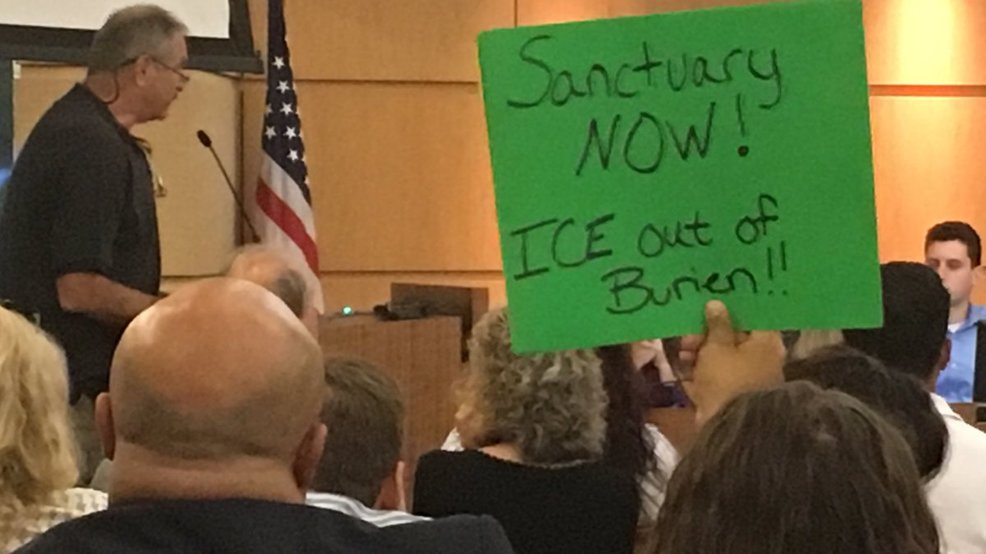 Sanctuary
NOW!
ICE out of
Burien!!